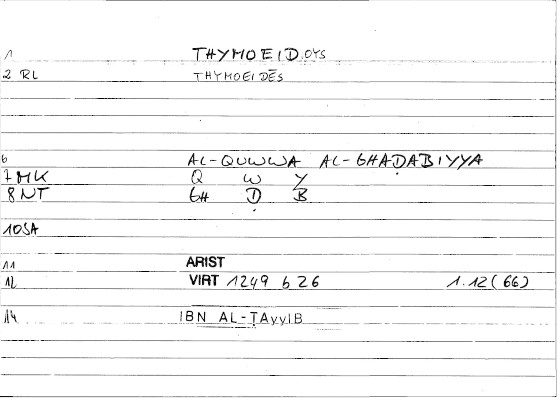 1 THYMOEID.OYS
2 RL THYMOEIDĒS
6 AL-QUWWA AL-GHAḌABIYYA
7 MK Q W Y
8 NT GH Ḍ B
10 SA
11 ARIST
12 VIRT 1249 b 26 1.12(66)
14 IBN AL-ṬAyyIB